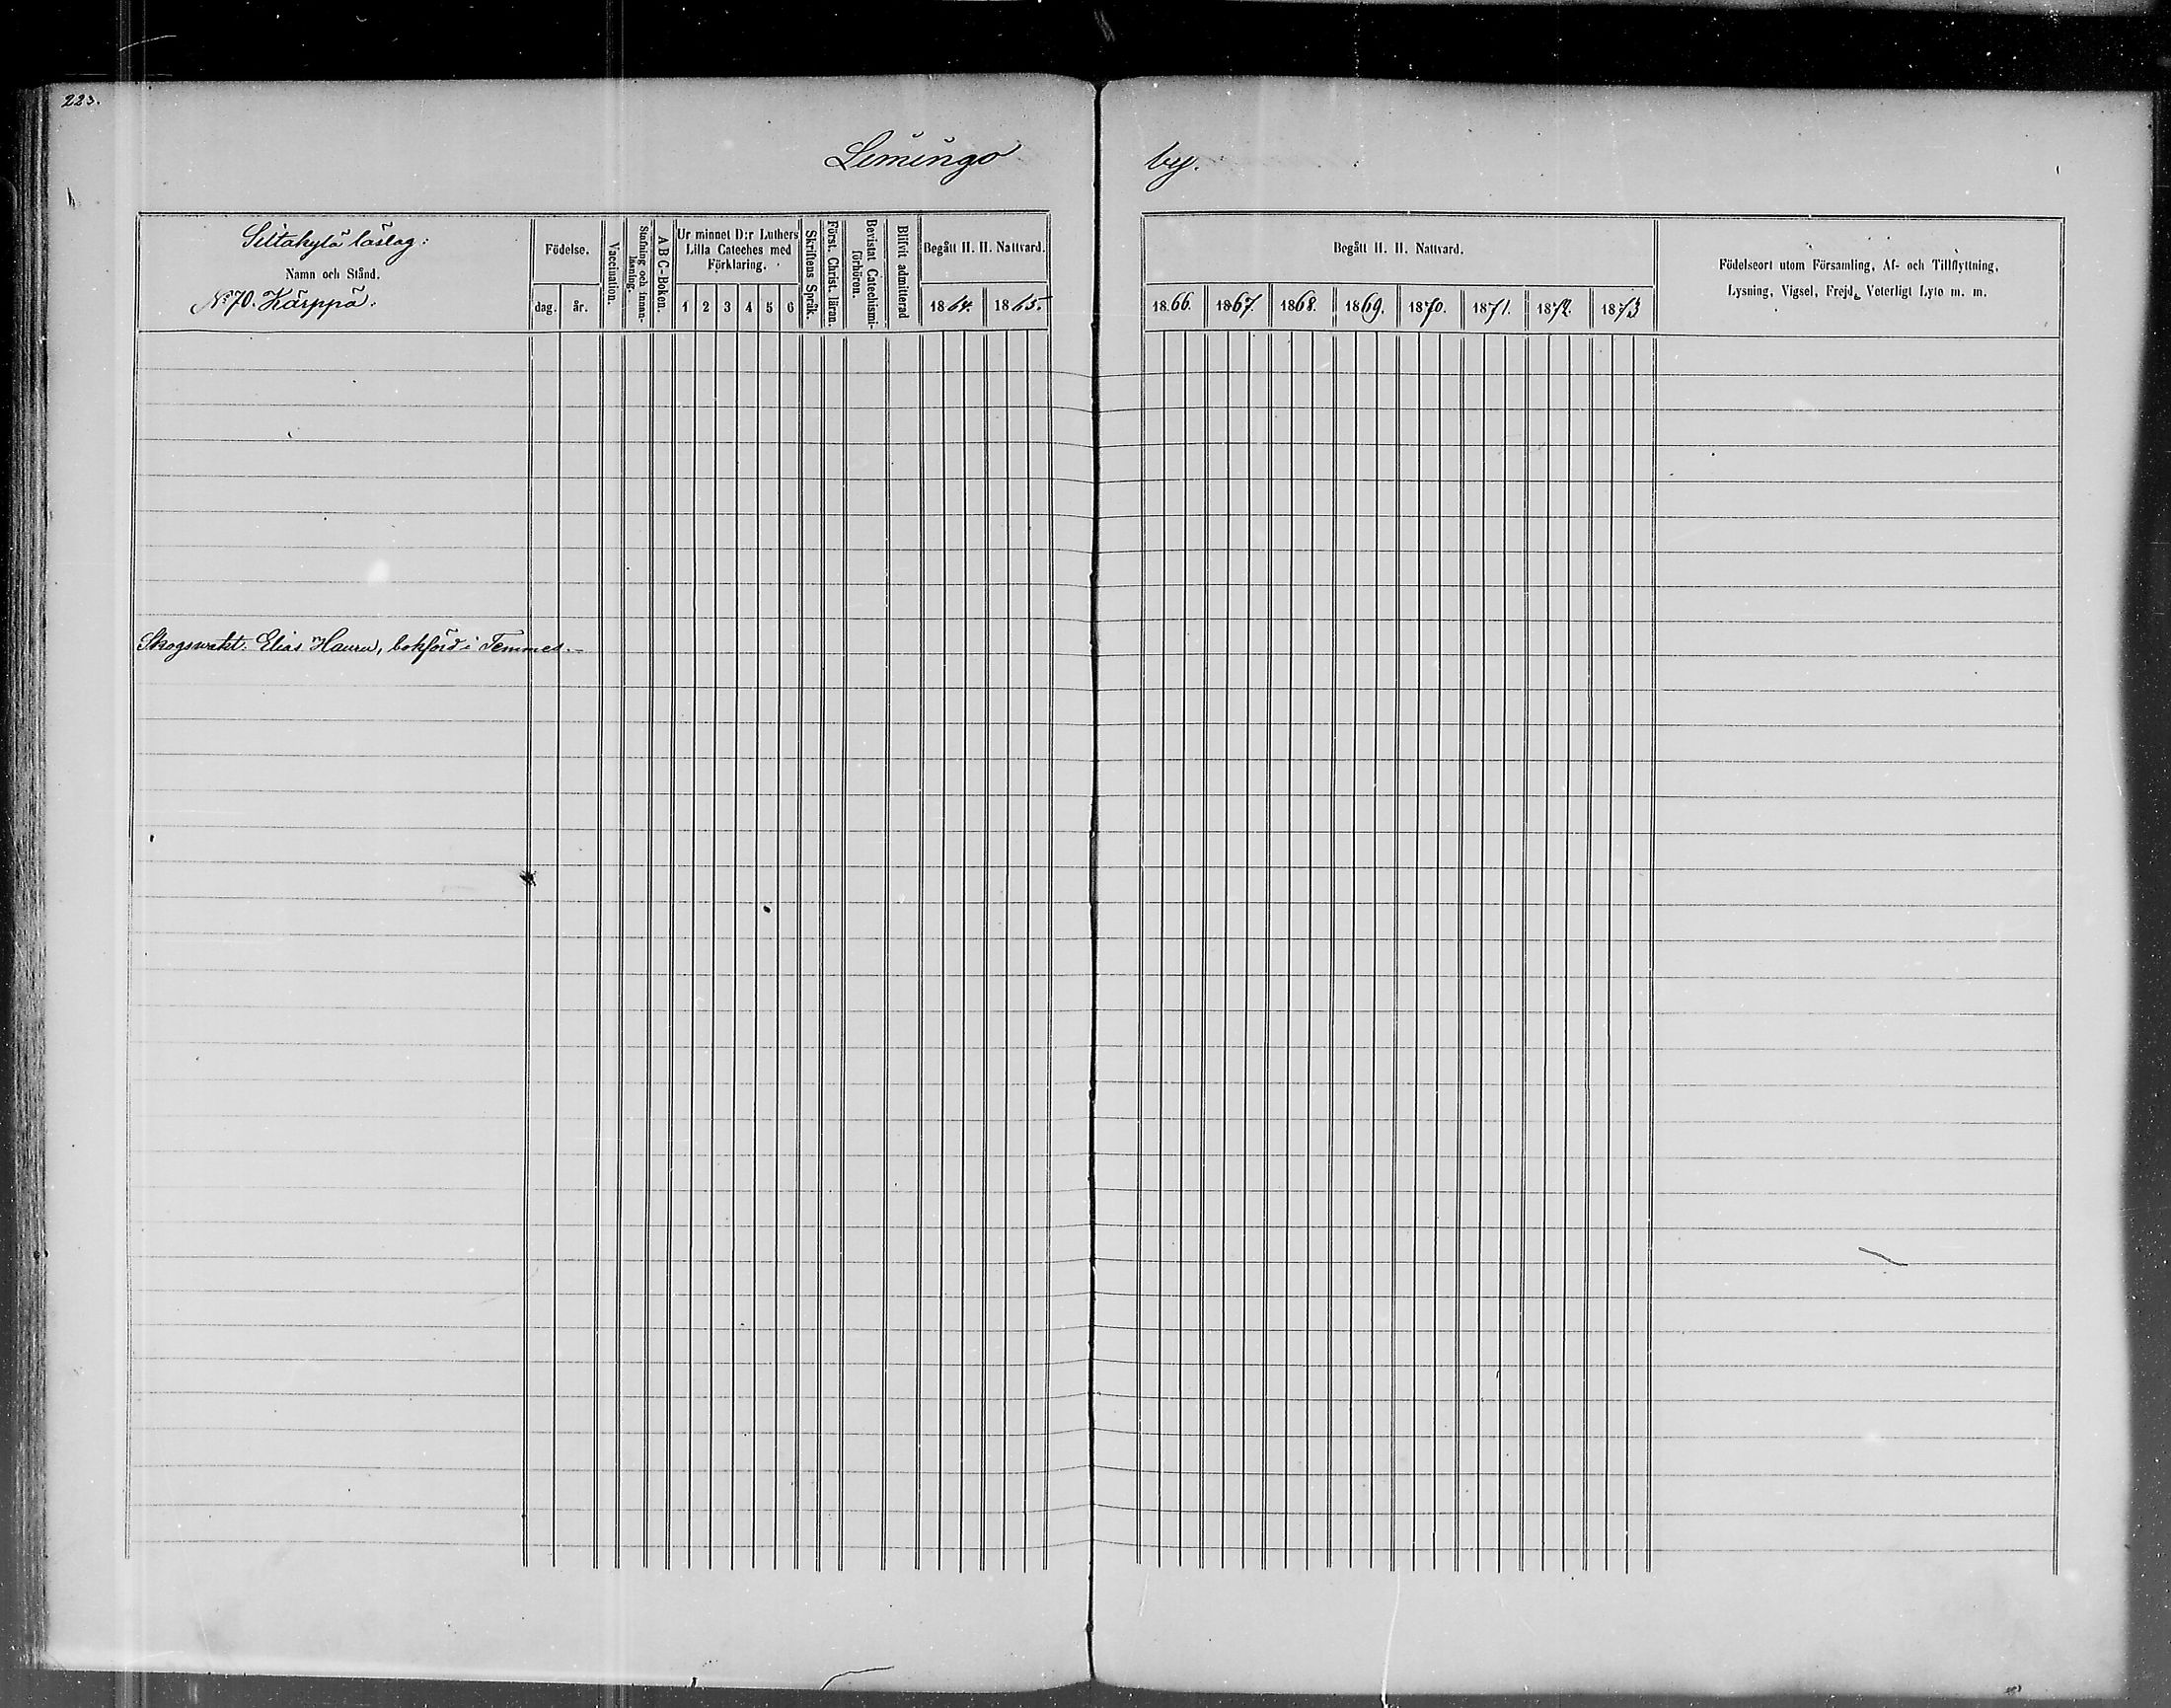 223.
Limingo by.
Siltakylä läslag:
Namn och Stånd.
No 70. Kärppä.
Födelse.
dag. år.
Vaccination.
Stafning och innanläsning.
A B C-Boken.
Ur minnet D:r Luthers
Lilla Cateches med
Förklaring.
1 2 3 4 5 6
Skriftens Språk.
Först. Christ. läran.
Bevistat Catechismi-
förhören.
Blifvit admitterad
Begått H. H. Nattvard.
1864. 1865.
Begått H. H. Nattvard.
1866. 1867. 1868. 1869. 1870. 1871. 1872. 1873
Födelseort utom Församling, Af- och Tillflyttning,
Lysning, Vigsel, Frejd, Veterligt Lyte m. m.
Skogswakt. Elias bokförd i Temmes.